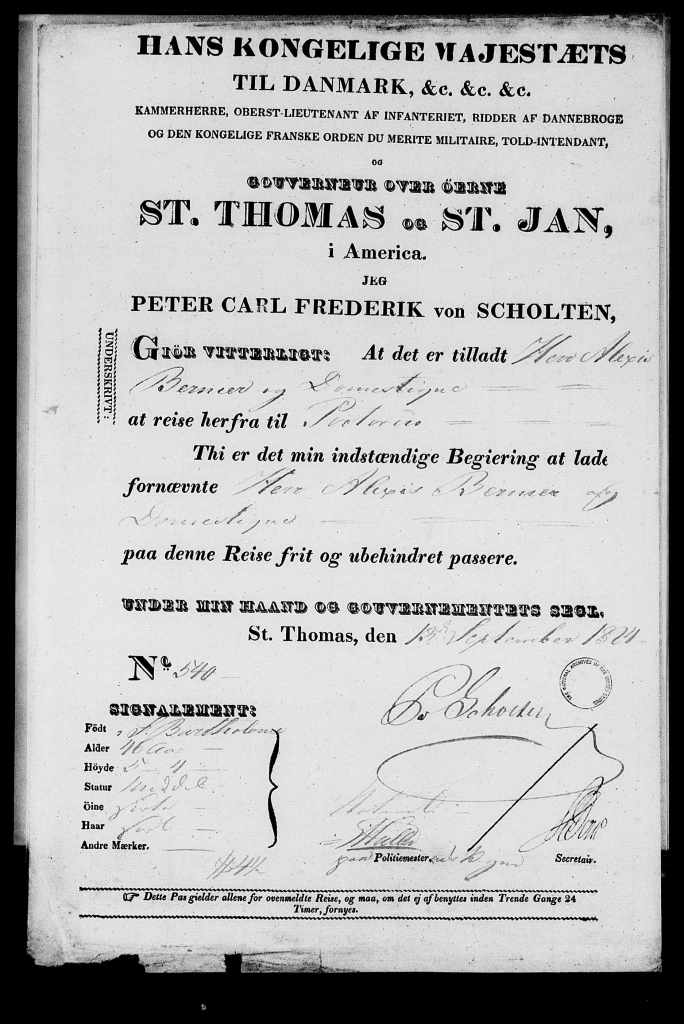 HANS KONGELIGE MAJESTÆTS
TIL DANMARK, &c. &c. &c.
KAMMERHERRE, OBERST-LIEUTENANT AF INFANTERIET, RIDDER AF DANNEBROGE
OG DEN KONGELIGE FRANSKE ORDEN DU MERITE MILITAIRE, TOLD-INTENDANT,
OG
GOUVERNEUR OVER ÖERNE
ST. THOMAS OG ST. JAN,
i America.
JEG
PETER CARL FREDERIK von SCHOLTEN,
UNDERSKRIVT:
GIÖR VITTERLIGT: At det er tilladt Herr Alexis
Bernier og Domestique
at reise herfra til Portorico
Thi er det min indstændige Begiering at lade
fornævnte Herr Alexis Bernier og
Domestique
paa denne Reise frit og ubehindret passere.
UNDER MIN HAAND OG GOUVERNEMENTETS SEGL.
St. Thomas, den 13 September 1824
No. 540
THE NATIONAL ARCHIVES OF THE UNITED STATES
SIGNALEMENT:
Födt St. Bartholome
Alder 46 Aar
Höyde 5 4
Statur Middel
Öine
Haar
Andre Mærker.
P v Scholten
Politiemester.
Secretair.
☞ Dette Pas gielder allene for ovenmeldte Reise, og maa, om det ej af benyttes inden Trende Gange 24
Timer, fornyes.